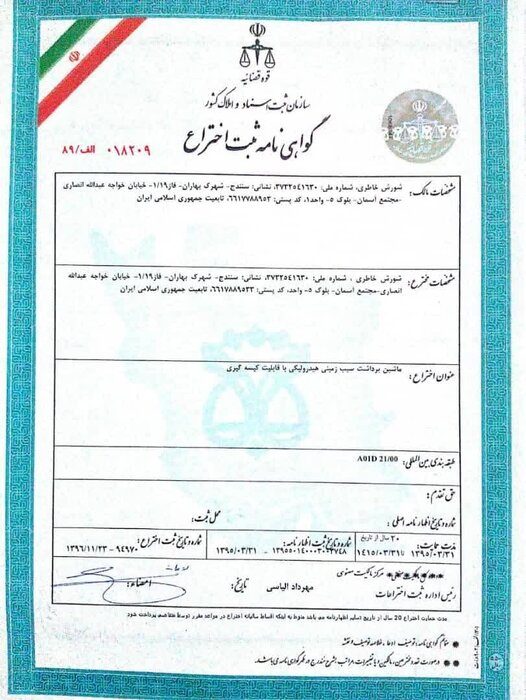 قوه قضائیه
سازمان ثبت اسناد و املاک کشور
گواهی نامه ثبت اختراع
۰۱۸۲۰۹ الف/۸۹
مشخصات مالک: شورش خاطری، شماره ملی: ۳۷۳۲۵۴۱۶۳۰، نشانی: سنندج- شهرک بهاران- فاز۱/۱۹- خیابان خواجه عبدالله انصاری
-مجتمع آسمان- بلوک ۵- واحد۱، کد پستی: ۶۶۱۷۷۸۸۹۵۳، تابعیت جمهوری اسلامی ایران
مشخصات مخترع: شورش خاطری ، شماره ملی: ۳۷۳۲۵۴۱۶۳۰، نشانی: سنندج- شهرک بهاران- فاز۱/۱۹- خیابان خواجه عبدالله
انصاری-مجتمع آسمان- بلوک ۵- واحد، کد پستی: ۶۶۱۷۸۸۹۵۳۳، تابعیت جمهوری اسلامی ایران
عنوان اختراع: ماشین برداشت سیب زمینی هیدرولیکی با قابلیت کیسه گیری
طبقه بندی بین المللی: A01D 21/00
حق تقدم:
شماره و تاریخ اظهارنامه اصلی: محل ثبت:
مدت حمایت: ۲۰ سال از تاریخ شماره و تاریخ ثبت اظهارنامه: شماره و تاریخ ثبت اختراع:
۱۳۹۵/۰۳/۳۱ تا ۱۴۱۵/۰۳/۳۱ ۱۳۹۵/۰۳/۳۱ - ۹۴۹۷۰ ۱۳۹۶/۱۱/۲۳
مرکز مالکیت معنوی
رئیس اداره ثبت اختراعات مهرداد الیاسی تاریخ: امضاء:
مدت حمایت اختراع 20 سال از تاریخ تسلیم اظهارنامه می باشد منوط به اینکه اقساط سالیانه اختراع در مواعد مقرر توسط متقاضی پرداخت شود
ضمائم گواهی نامه: توصیف، ادعا، خلاصه توصیف و نقشه